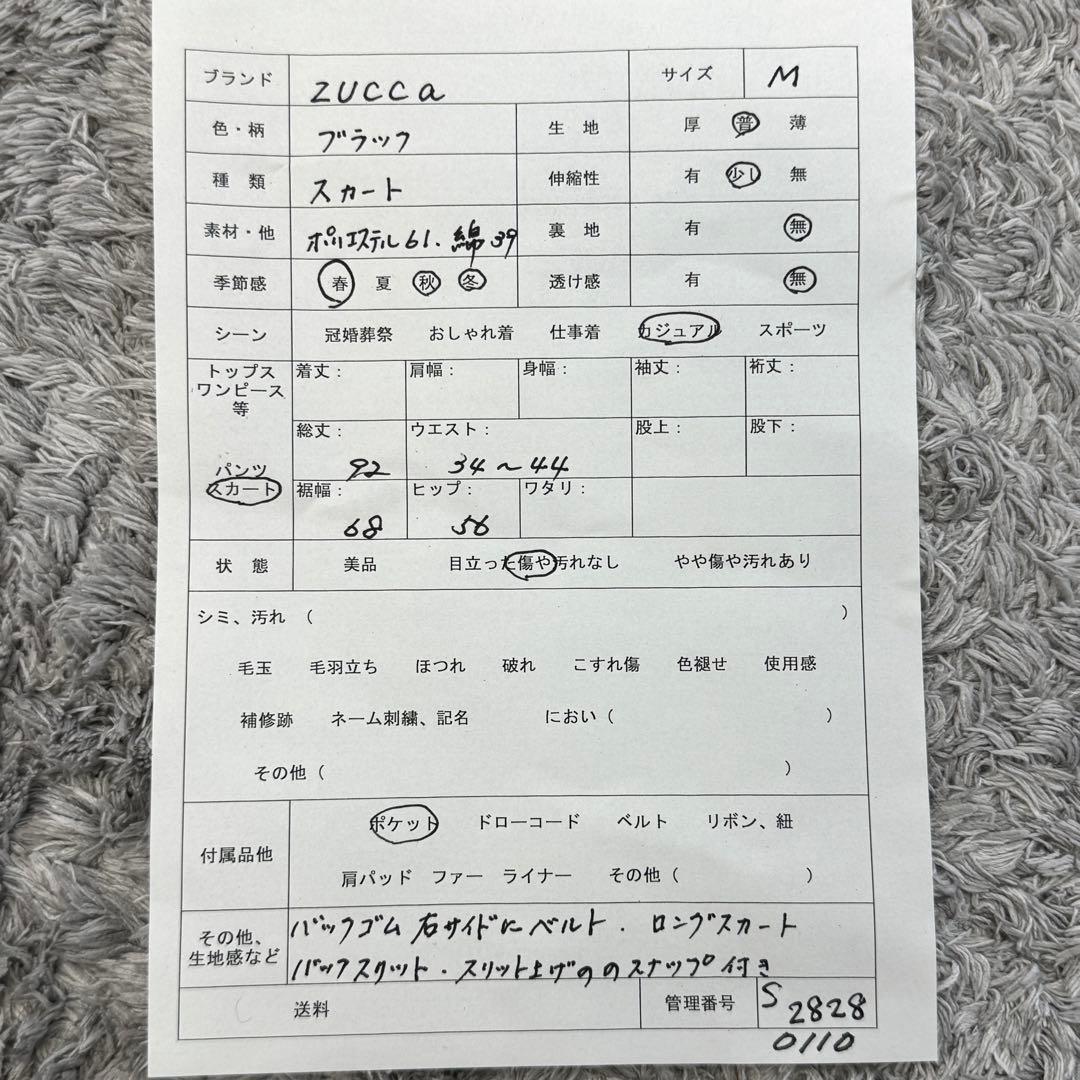 ブランド ZUCCa サイズ M
色・柄 ブラック 生 地 厚 普 薄
種 類 スカート 伸縮性 有 少し 無
素材・他 ポリエステル61. 綿39 裏 地 有 無
季節感 春 夏 秋 冬 透け感 有 無
シーン 冠婚葬祭 おしゃれ着 仕事着 カジュアル スポーツ
トップス 着丈: 肩幅: 身幅: 袖丈: 裄丈:
ワンピース
等
総丈: ウエスト: 股上: 股下:
パンツ 92 34~44
スカート 裾幅: ヒップ: ワタリ:
68 56
状 態 美品 目立った傷や汚れなし やや傷や汚れあり
シミ、汚れ ( )
毛玉 毛羽立ち ほつれ 破れ こすれ傷 色褪せ 使用感
補修跡 ネーム刺繍、記名 におい( )
その他( )
ポケット ドローコード ベルト リボン、紐
付属品他
肩パッド ファー ライナー その他( )
その他、 バックゴム 右サイドにベルト. ロングスカート
生地感など バックスリット.スリット上げののスナップ付き
送料 管理番号 S 2828
0110